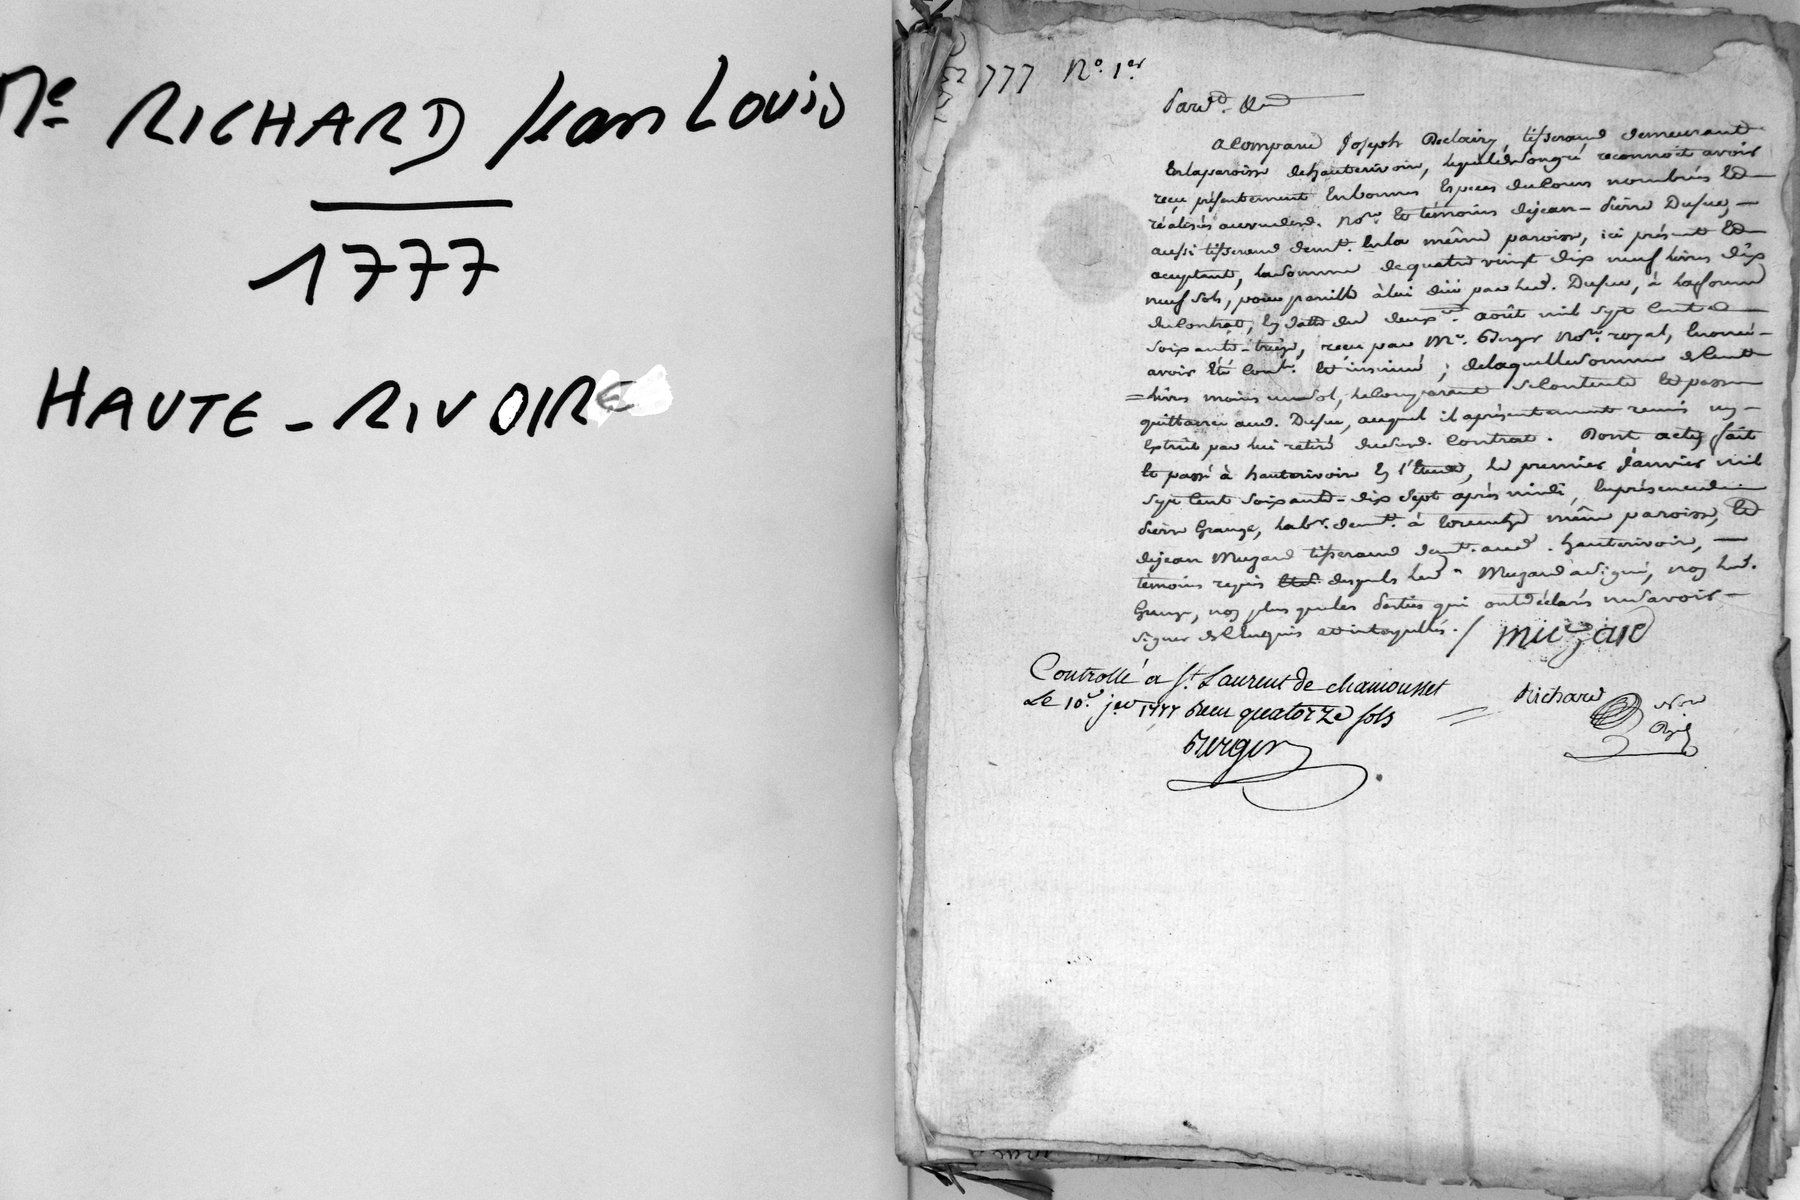 Me RICHARD Jean Louis
1777
HAUTE-RIVOIRE
1777 No. 1er
Pard.
a Comparu Joseph tisserand demeurant
en la paroisse de hauterivoire, lequel de son gré reconnoit avoir
reçu présentement en bonnes Espèces du Cours nombrées Et
réalisées au vu desd. Nore Et témoins de jean-Pierre Dufue,
aussi tisserand demt. En la même paroisse, ici présent Et
aceptant, la somme de quatre vingt dix neuf livres dix
neuf sols, pour pareille à lui düe par led. Dufue, à la forme
du Contrat, En datte du deuxe. août mil sept Cent
soixante-treize, reçu par Me. Berger Nore. royal, Enoncé
avoir Eté Cont. Et insinué ; de laquelle somme de Cent
livres moins un sol, le Comparant se Contente Et passe
quittance aud. Dufue, auquel il a présentement remis un
Extrait par lui retiré dud. Contrat. Dont acte, fait
Et passé à hauterivoire En l'Etude, le premier Janvier mil
sept Cent soixante-dix sept après midi, En présence de
Pierre Grange, labr. demt. à même paroisse, Et
de jean Muzard tisserand demt. aud. hauterivoire,
témoins requis desquels led. Muzard a signé, non led.
Grange, non plus que les Parties qui ont déclaré ne savoir
signer de Ce enquis et interpellés. / Muzard
Controllé a St. Laurent de chamousset
Le 10e. jer 1777 Reçu quatorze sols
Richard Nore
Berger